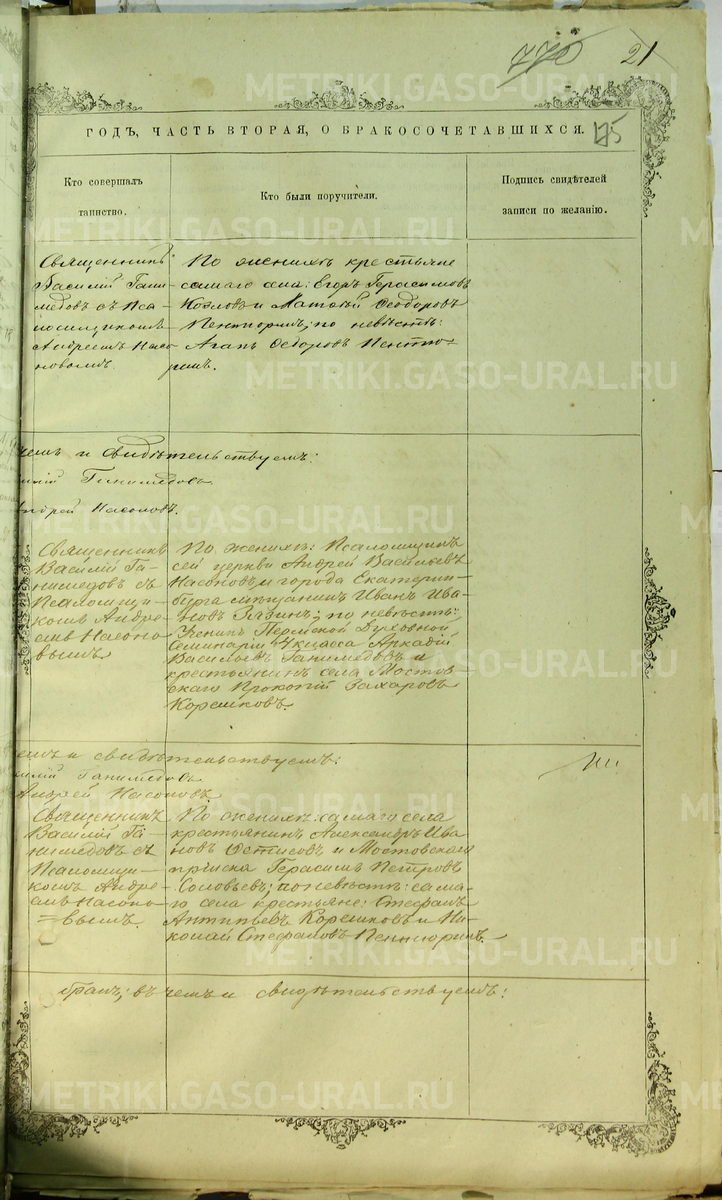 770 21
ГОДЪ, ЧАСТЬ ВТОРАЯ, О БРАКОСОЧЕТАВШИХСЯ.
175
Кто совершалъ
таинство.
Кто были поручители.
Подпись свидѣтелей
записи по желанію.
Священникъ
Василій Гани-
медовъ съ Пса-
ломщикомъ
Андреемъ Насо-
новымъ.
По женихѣ крестьяне
самаго села: Егоръ Герасимовъ
Козловъ и Матвѣй Ѳеодоровъ
по невѣстѣ:
Агапъ Ѳедоровъ
чемъ и свидѣтельствуемъ:
силій Ганимедовъ
Андрей Насоновъ.
Священникъ
Василій Га-
нимедовъ съ
Псаломщи-
комъ Андре-
емъ Насоно-
вымъ
По женихѣ: Псаломщикъ
сей церкви Андрей Васильевъ
Насоновъ и города Екатерин-
бурга мѣщанинъ Иванъ Ива-
новъ по невѣстѣ:
Ученикъ Пермской Духовной
Семинаріи 4 класса Аркадій
Васильевъ Ганимедовъ и
крестьянинъ села Мостов-
скаго Прокопій Захаровъ
Корелковъ.
чемъ и свидѣтельствуемъ:
силій Ганимедовъ
Андрей Насоновъ
Священникъ
Василій Га-
нимедовъ съ
Псаломщи-
комъ Андре-
емъ Насоно-
=вымъ.
По женихѣ: самаго села
крестьянинъ Александръ Ива
новъ и Мостовскаго
пріиска Герасимъ Петровъ
Соловьевъ; по невѣстѣ: сама-
го села крестьяне: Стефанъ
Антипьевъ Корелковъ и Ни-
колай Стефановъ
бракъ; въ чемъ и свидѣтельствуемъ:
METRIKI.GASO-URAL.RU